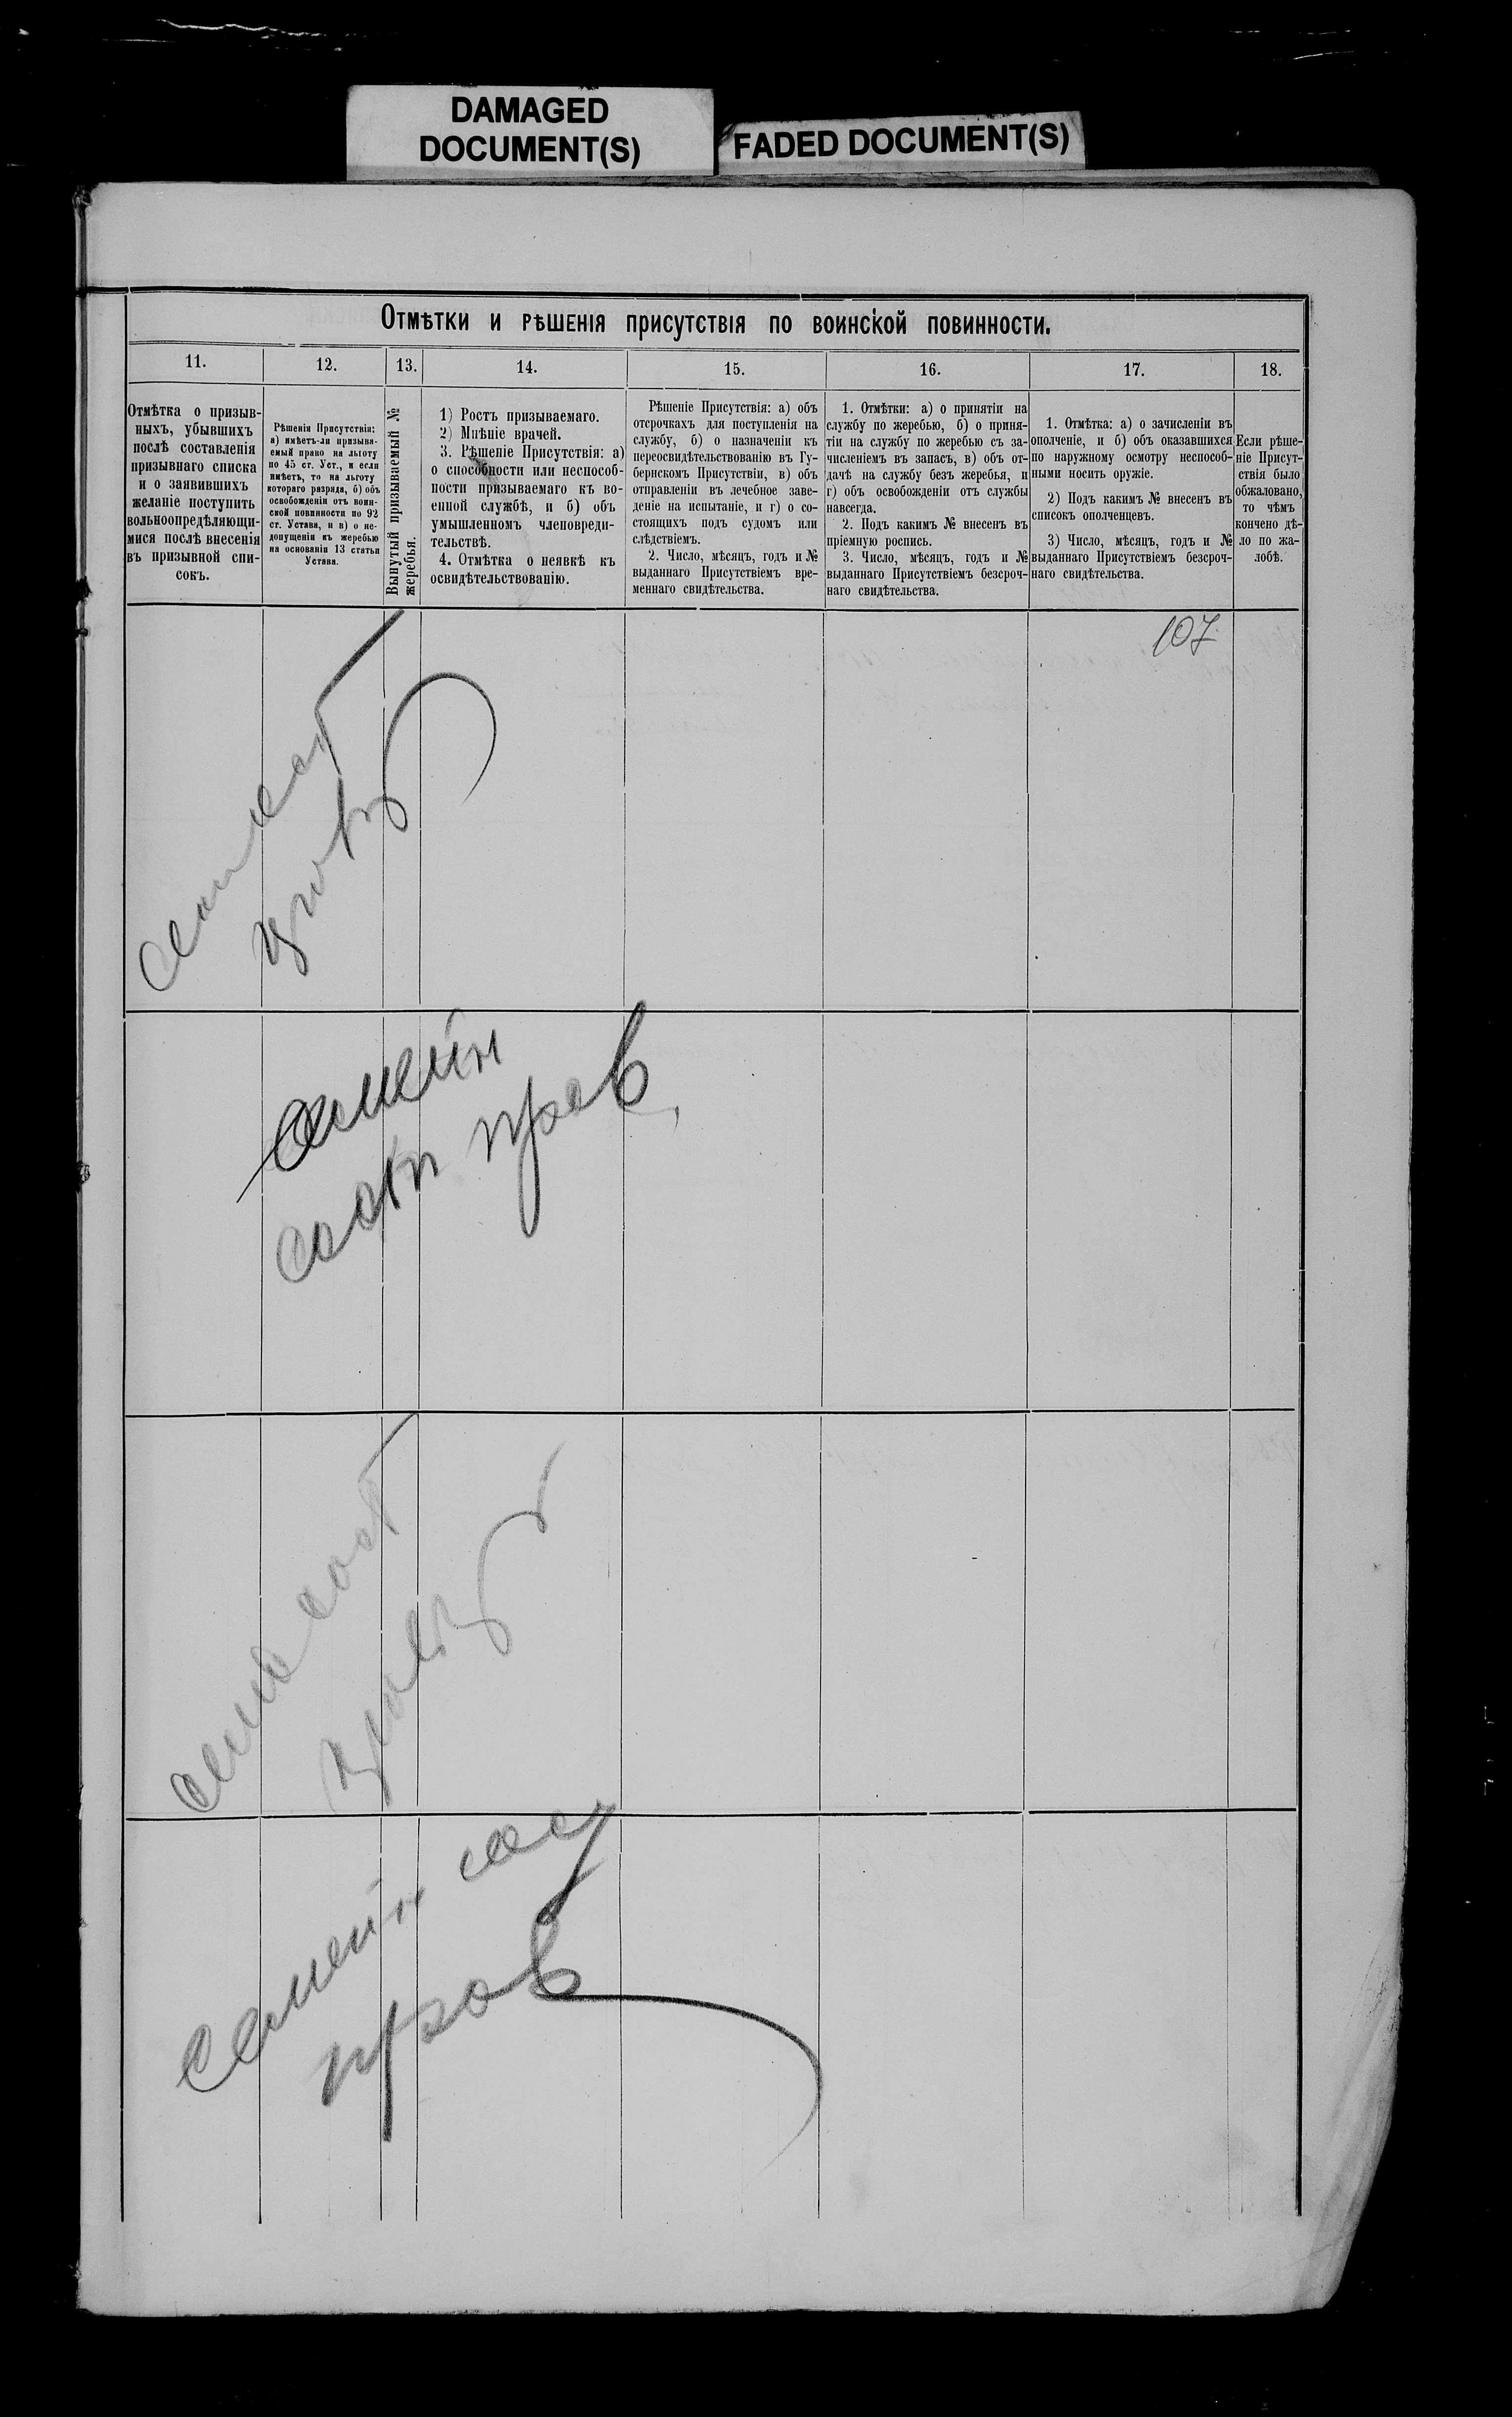 DAMAGED
DOCUMENT(S)
FADED DOCUMENT(S)
Отмѣтки и рѣшенія присутствія по воинской повинности.
11.
12.
13.
14.
15.
16.
17.
18.
Отмѣтка о призыв-
ныхъ, убывшихъ
послѣ составленія
призывнаго списка
и о заявившихъ
желаніе поступить
вольноопредѣляющи-
мися послѣ внесенія
въ призывной спи-
сокъ.
Рѣшенія Присутствія:
а) имѣетъ-ли призыва-
емый право на льготу
по 45 ст. Уст., и если
имѣетъ, то на льготу
котораго разряда, б) объ
освобожденіи отъ воин-
ской повинности по 92
ст. Устава, и в) о не-
допущеніи къ жеребью
на основаніи 13 статьи
Устава.
Вынутый призываемый №
жеребья.
1) Ростъ призываемаго.
2) Мнѣніе врачей.
3. Рѣшеніе Присутствія: а)
о способности или неспособ-
ности призываемаго къ во-
енной службѣ, и б) объ
умышленномъ членовреди-
тельствѣ.
4. Отмѣтка о неявкѣ къ
освидѣтельствованію.
Рѣшеніе Присутствія: а) объ
отсрочкахъ для поступленія на
службу, б) о назначеніи къ
переосвидѣтельствованію въ Гу-
бернскомъ Присутствіи, в) объ
отправленіи въ лечебное заве-
деніе на испытаніе, и г) о со-
стоящихъ подъ судомъ или
слѣдствіемъ.
2. Число, мѣсяцъ, годъ и №
выданнаго Присутствіемъ вре-
меннаго свидѣтельства.
1. Отмѣтки: а) о принятіи на
службу по жеребью, б) о приня-
тіи на службу по жеребью съ за-
численіемъ въ запасъ, в) объ от-
дачѣ на службу безъ жеребья, и
г) объ освобожденіи отъ службы
навсегда.
2. Подъ какимъ № внесенъ въ
пріемную роспись.
3. Число, мѣсяцъ, годъ и №
выданнаго Присутствіемъ безсроч-
наго свидѣтельства.
1. Отмѣтка: а) о зачисленіи въ
ополченіе, и б) объ оказавшихся
по наружному осмотру неспособ-
ными носить оружіе.
2) Подъ какимъ № внесенъ въ
списокъ ополченцевъ.
3) Число, мѣсяцъ, годъ и №
выданнаго Присутствіемъ безсроч-
наго свидѣтельства.
Если рѣше-
ніе Присут-
ствія было
обжаловано,
то чѣмъ
кончено дѣ-
ло по жа-
лобѣ.
107
семейн
сост прав
сем сост
семейн сост
прав